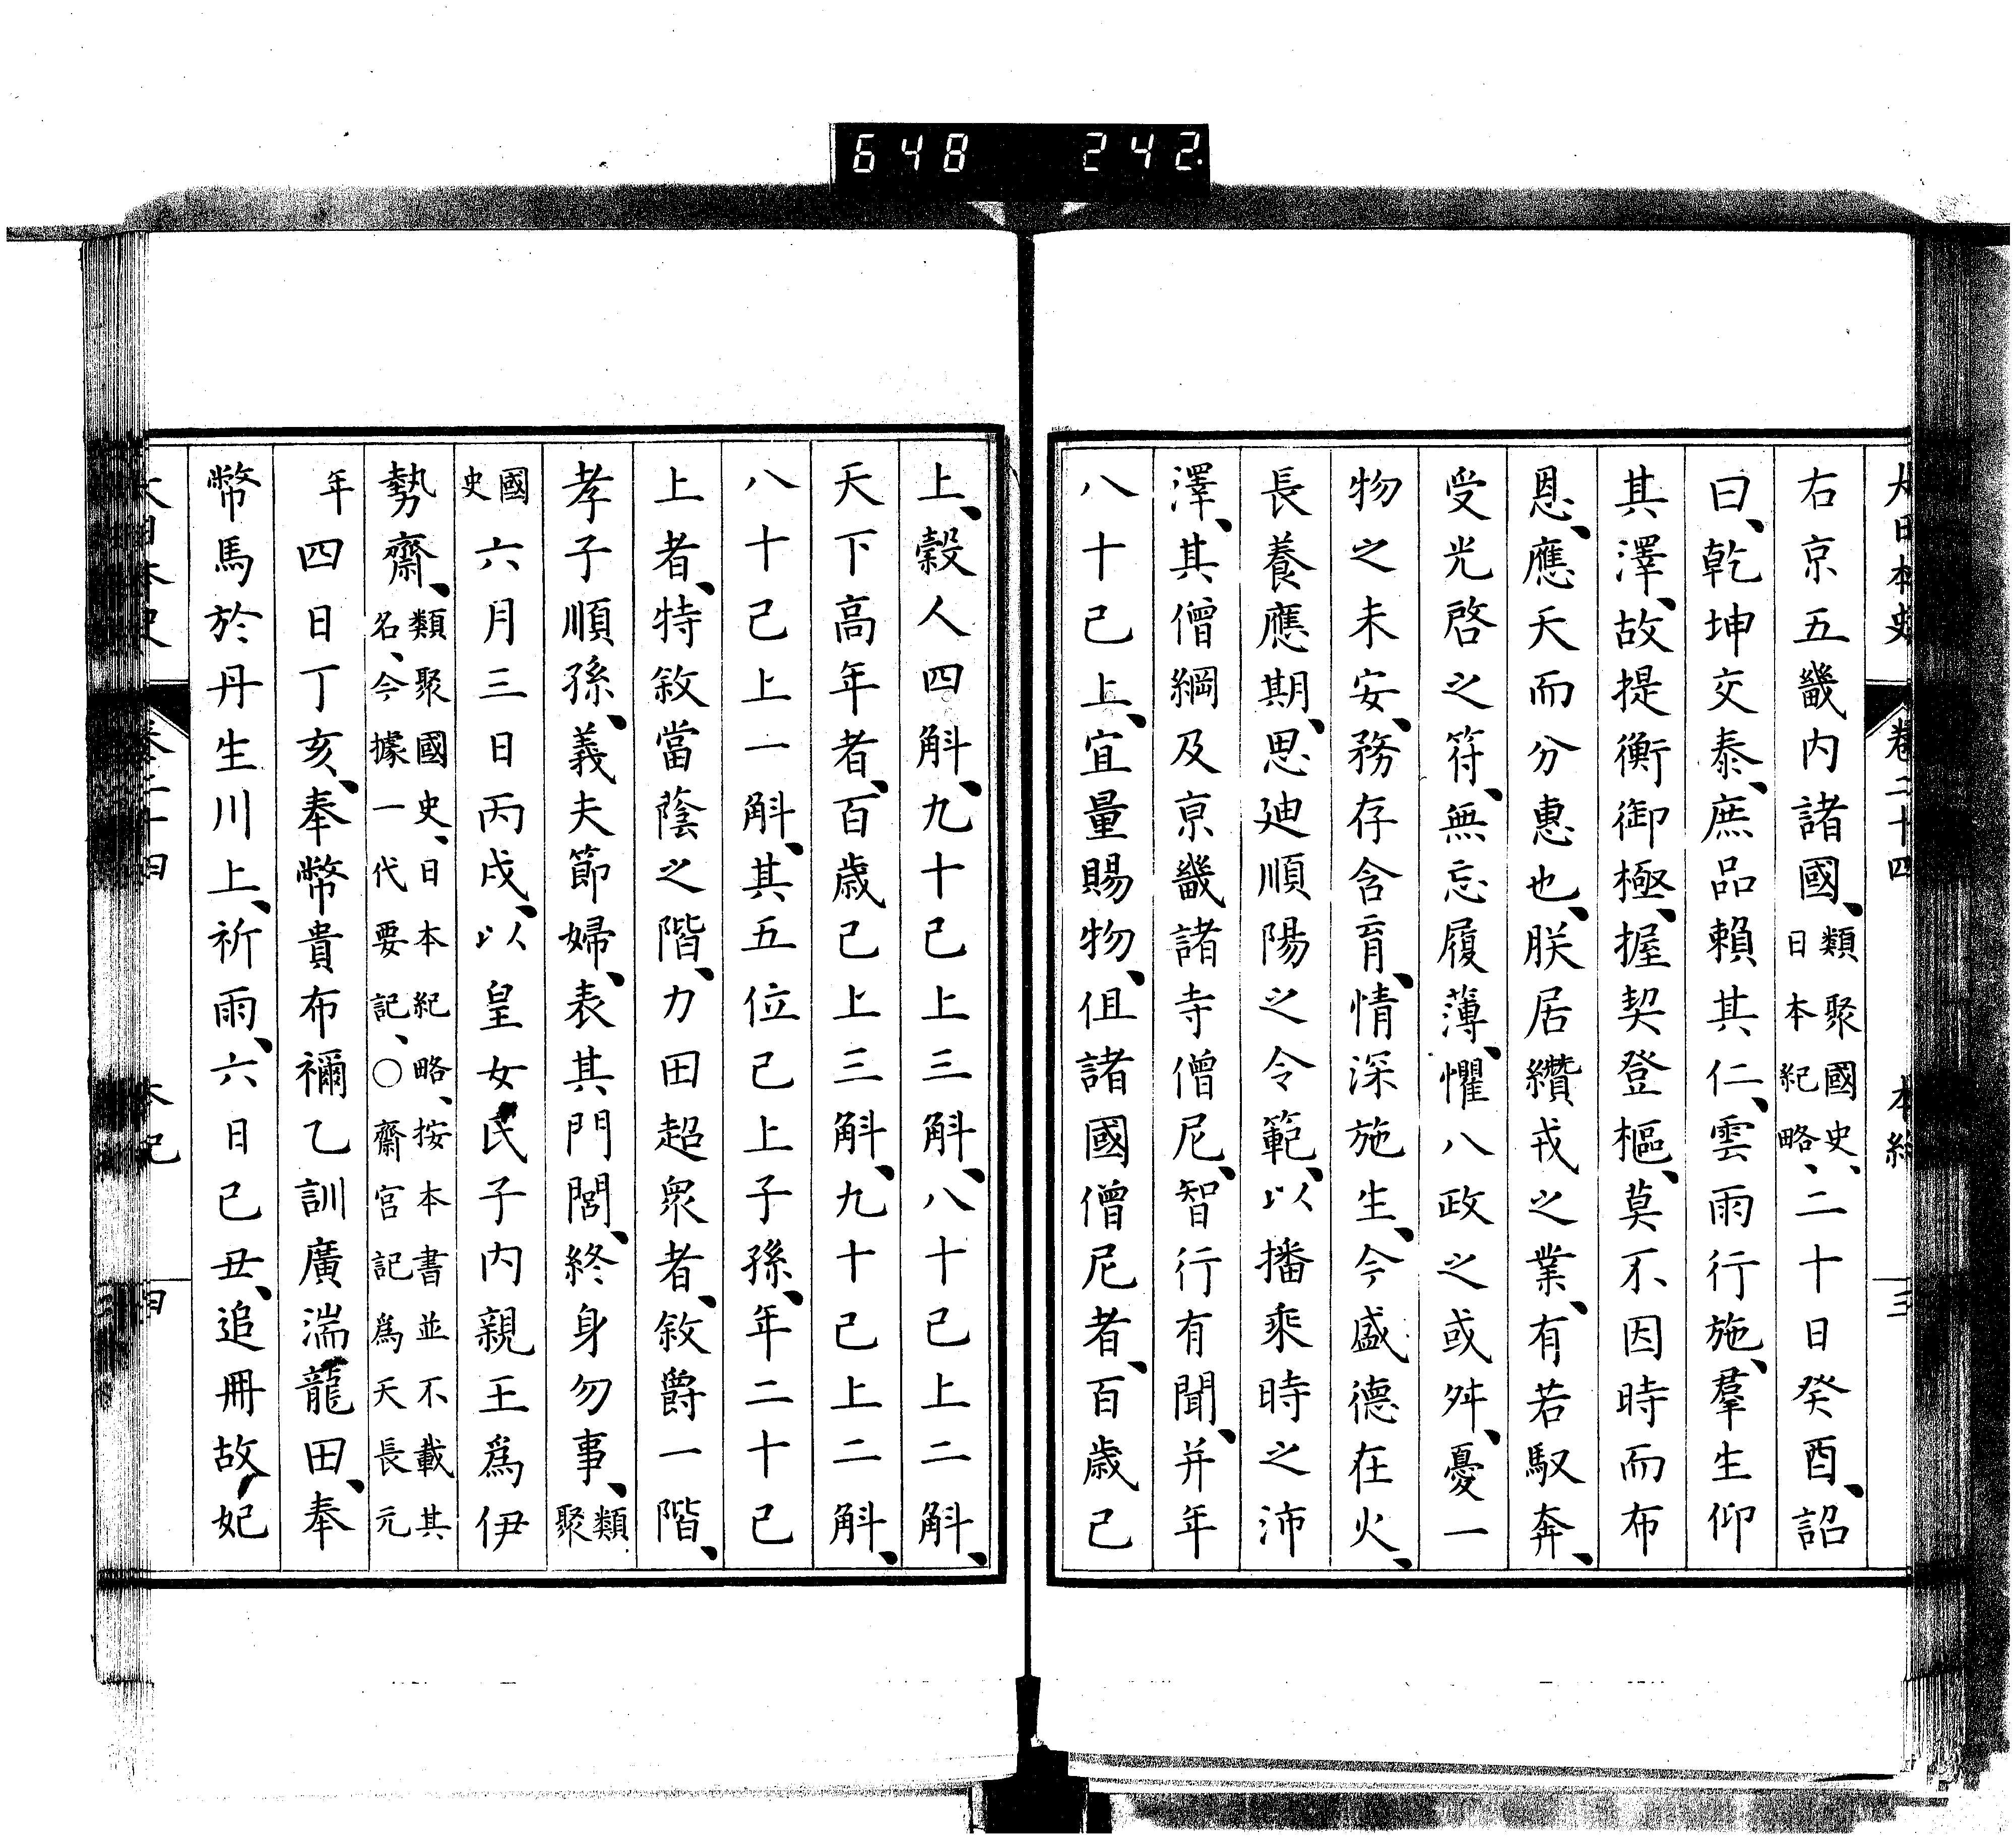 648 242
大日本史 卷二十四 本紀 三
右京五畿内諸國、類聚國史、日本紀略、二十日癸酉、詔
曰、乾坤交泰、庶品賴其仁、雲雨行施、羣生仰
其澤、故提衡御極、握契登樞、莫不因時而布
恩、應天而分惠也、朕居纘戎之業、有若馭奔、
受光啓之符、無忘履薄、懼八政之或舛、憂一
物之未安、務存含育、情深施生、今盛德在火、
長養應期、思廸順陽之令範、以播乘時之沛
澤、其僧綱及京畿諸寺僧尼、智行有聞、并年
八十已上、宜量賜物、但諸國僧尼者、百歲已
上、穀人四斛、九十已上三斛、八十已上二斛、
天下高年者、百歲已上三斛、九十已上二斛、
八十已上一斛、其五位已上子孫、年二十已
上者、特敘當蔭之階、力田超衆者、敘爵一階、
孝子順孫、義夫節婦、表其門閭、終身勿事、類聚
國史六月三日丙戌、以皇女氏子内親王爲伊
勢齋、類聚國史、日本紀略、按本書並不載其名、今據一代要記、○齋宮記爲天長元
年四日丁亥、奉幣貴布禰乙訓廣湍龍田、奉
幣馬於丹生川上、祈雨、六日己丑、追冊故妃
大日本史 卷二十四 本紀 四